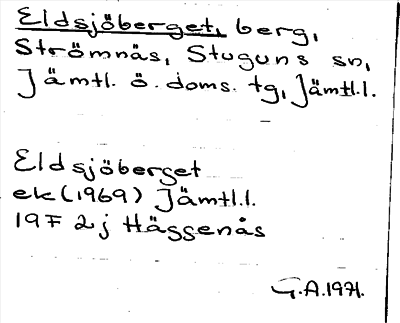 Eldsjöberget, berg,
Strömnäs, Stuguns sn,
Jämtl. ö. doms. tg, Jämtl.l.
Eldsjöberget
ek (1969) Jämtl.l.
19F 2j Häggenås
G.A.1971.